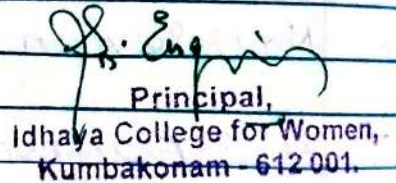 Principal,
Idhaya College for Women,
Kumbakonam - 612 001.